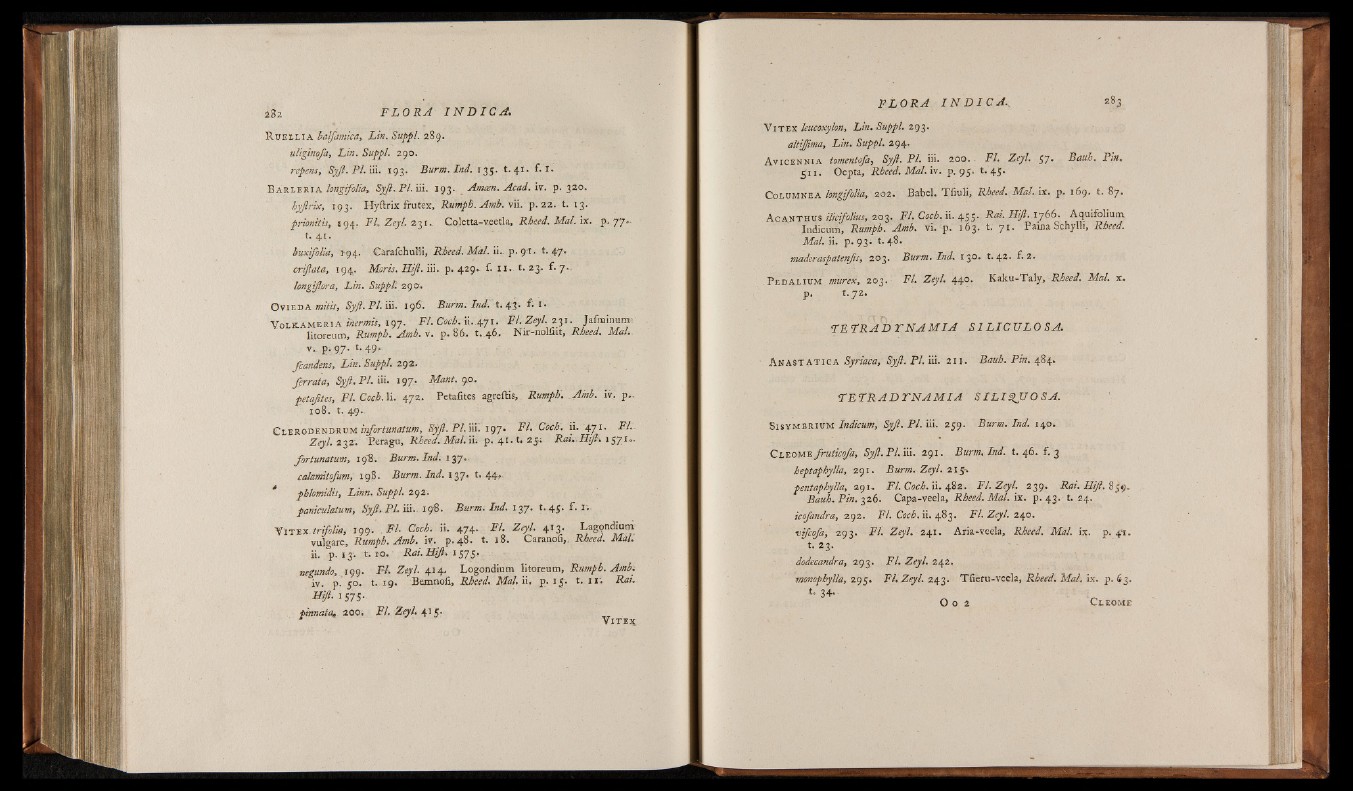 282 FLORA INDICA.
RUELLIA balſamica, Lin. Suppl. 289.
uliginoſa, Lin. Suppl. 290.
repens, Syſt. Pl. iii. 193. Burm. Ind. 135. t. 41. f. 1.
BARLERIA longifolia, Syſt. Pl. iii. 193. Amœn. Acad. iv. p. 320.
hyſtrix, 193. Hyſtrix frutex, Rumph. Amb. vii. p. 22. t. 13.
prionitis, 194. Fl. Zeyl. 231. Coletta-veetla, Rheed. Mal. ix. p. 77.
t. 41.
buxifolia, 194. Caraſchulli, Rheed. Mal. ii. p. 91. t. 47.
criſtata, 194. Moris. Hiſt. iii. p. 429. f. 11. t. 23. f. 7.
longiflora, Lin. Suppl. 290.
OVIEDA mitis, Syſt. Pl. iii. 196. Burm. Ind. t. 43. f. 1.
VOLKAMERIA inermis, 197. Fl. Coch. ii. 471. Fl. Zeyl. 231. Jaſminum
litoreum, Rumph. Amb. v. p. 86. t. 46. Nir-notſiit, Rheed. Mal.
v. p. 97. t. 49.
ſcandens, Lin. Suppl. 292.
ſerrata, Syſt. Pl. iii. 197. Mant. 90.
petaſites, Fl. Coch. ii. 472. Petaſites agreſtis, Rumph. Amb. iv. p.
108. t. 49.
CLERODENDRUM infortunatum, Syſt. Pl. iii. 197. Fl. Coch. ii. 471. Fl.
Zeyl. 232. Peragu, Rheed. Mal. ii. p. 41. t. 25. Rai. Hiſt. 1571.
fortunatum, 198. Burm. Ind. 137.
calamitoſum, 198. Burm. Ind. 137. t. 44.
phlomidis, Linn. Suppl. 292.
paniculatum, Syſt. Pl. iii. 198. Burm. Ind. 137. t. 45. f. 1.
VITEX trifolia, 199. Fl. Coch. ii. 474. Fl. Zeyl. 413. Lagondium
vulgare, Rumph. Amb. iv. p. 48. t. 18. Caranoſi, Rheed. Mal.
ii. p. 13. t. 10. Rai. Hiſt. 1575.
negundo, 199. Fl. Zeyl. 414. Logondium litoreum, Rumph. Amb.
iv. p. 50. t. 19. Bemnoſi, Rheed. Mal. ii. p. 15. t. 11. Rai.
Hiſt. 1575.
pinnata, 200. Fl. Zeyl. 415.
VITEX
FLORA INDICA. 283
VITEX leucoxylon, Lin. Suppl. 293.
altiſſima, Lin. Suppl. 294.
AVICENNIA tomentoſa, Syſt. Pl. iii. 200. Fl. Zeyl. 57. Bauh. Pin.
511. Oepta, Rheed. Mal. iv. p. 95. t. 45.
COLUMNEA longifolia, 202. Babel. Tſiuli, Rheed. Mal. ix. p. 169. t. 87.
ACANTHUS ilicifolius, 203. Fl. Coch. ii. 455. Rai. Hiſt. 1766. Aquifolium
Indicum, Rumph. Amb. vi. p. 163. t. 71. Paina Schylli, Rheed.
Mal. ii. p. 93. t. 48.
maderaspatenſis, 203. Burm. Ind. 130. t. 42. f. 2.
PEDALIUM murex, 203. Fl. Zeyl. 440. Kaku-Taly, Rheed. Mal. x.
p. t. 72.
TETRADYNAMIA SILICULOSA.
ANASTATICA Syriaca, Syſt. Pl. iii. 211. Bauh. Pin. 484.
TETRADYNAMIA SILIQUOSA.
SISYMBRIUM Indicum, Syſt. Pl. iii. 259. Burm. Ind. 140.
CLEOME fruticoſa, Syſt. Pl. iii. 291. Burm. Ind. t. 46. f. 3
heptaphylla, 291. Burm. Zeyl. 215.
pentaphylla, 291. Fl. Coch. ii. 482. Fl. Zeyl. 239. Rai. Hiſt. 859.
Bauh. Pin. 326. Capa-veela, Rheed. Mal. ix. p. 43. t. 24.
icoſandra, 292. Fl. Coch. ii. 483. Fl. Zeyl. 240.
viſcoſa, 293. Fl. Zeyl. 241. Aria-veela, Rheed. Mal. ix. p. 41.
t. 23.
dodecandra, 293. Fl. Zeyl. 242.
monophylla, 295. Fl. Zeyl. 243. Tſieru-veela, Rheed. Mal. ix. p. 63.
t. 34.
O o 2 CLEOME